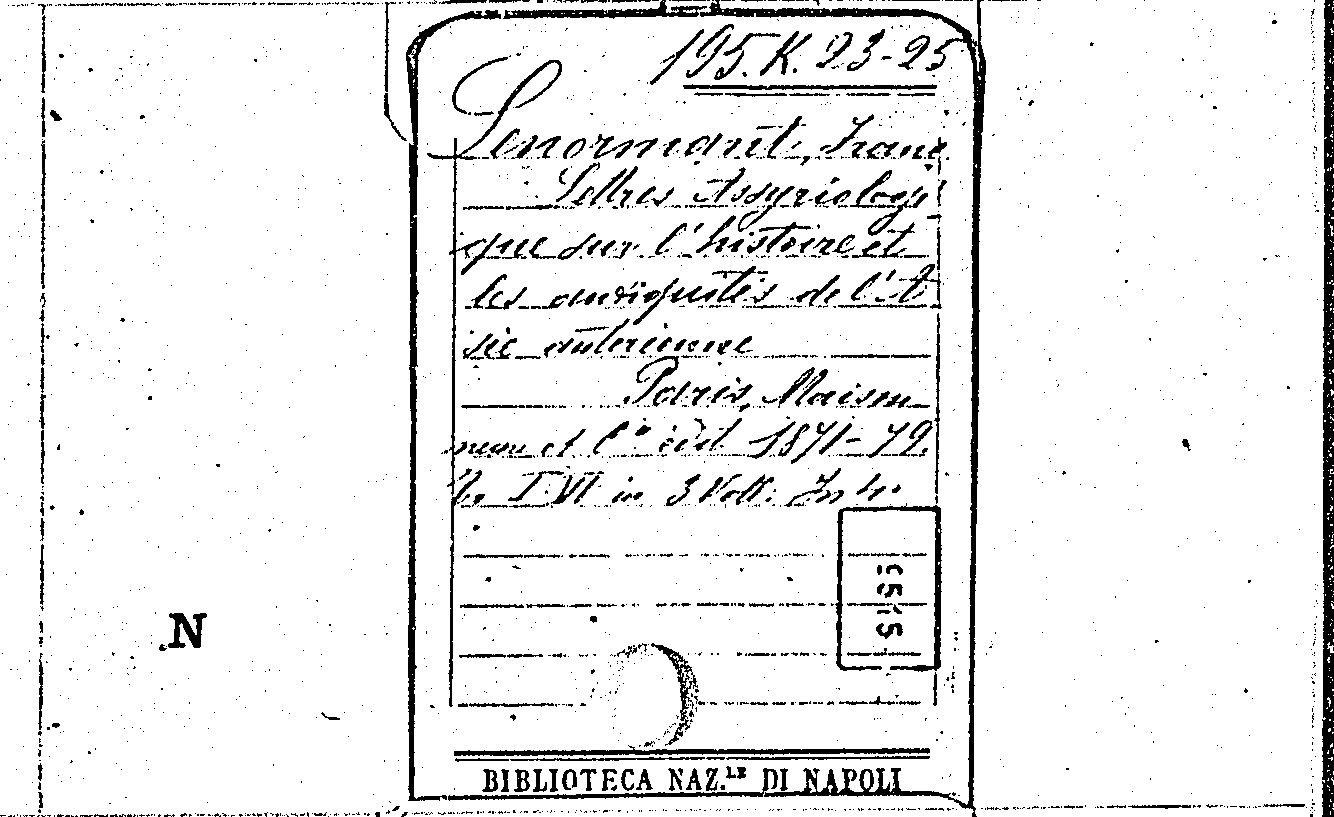 195.K.23-25
Lenormant, Franç
Lettres Assyriologi
que sur l'histoire et
les antiquités de l'A
sie antérienne
Paris, Maison
neuve et C.ie édit. 1871-79.
T. I-VI in 3 Voll. In 4.
N
BIBLIOTECA NAZ.LE DI NAPOLI